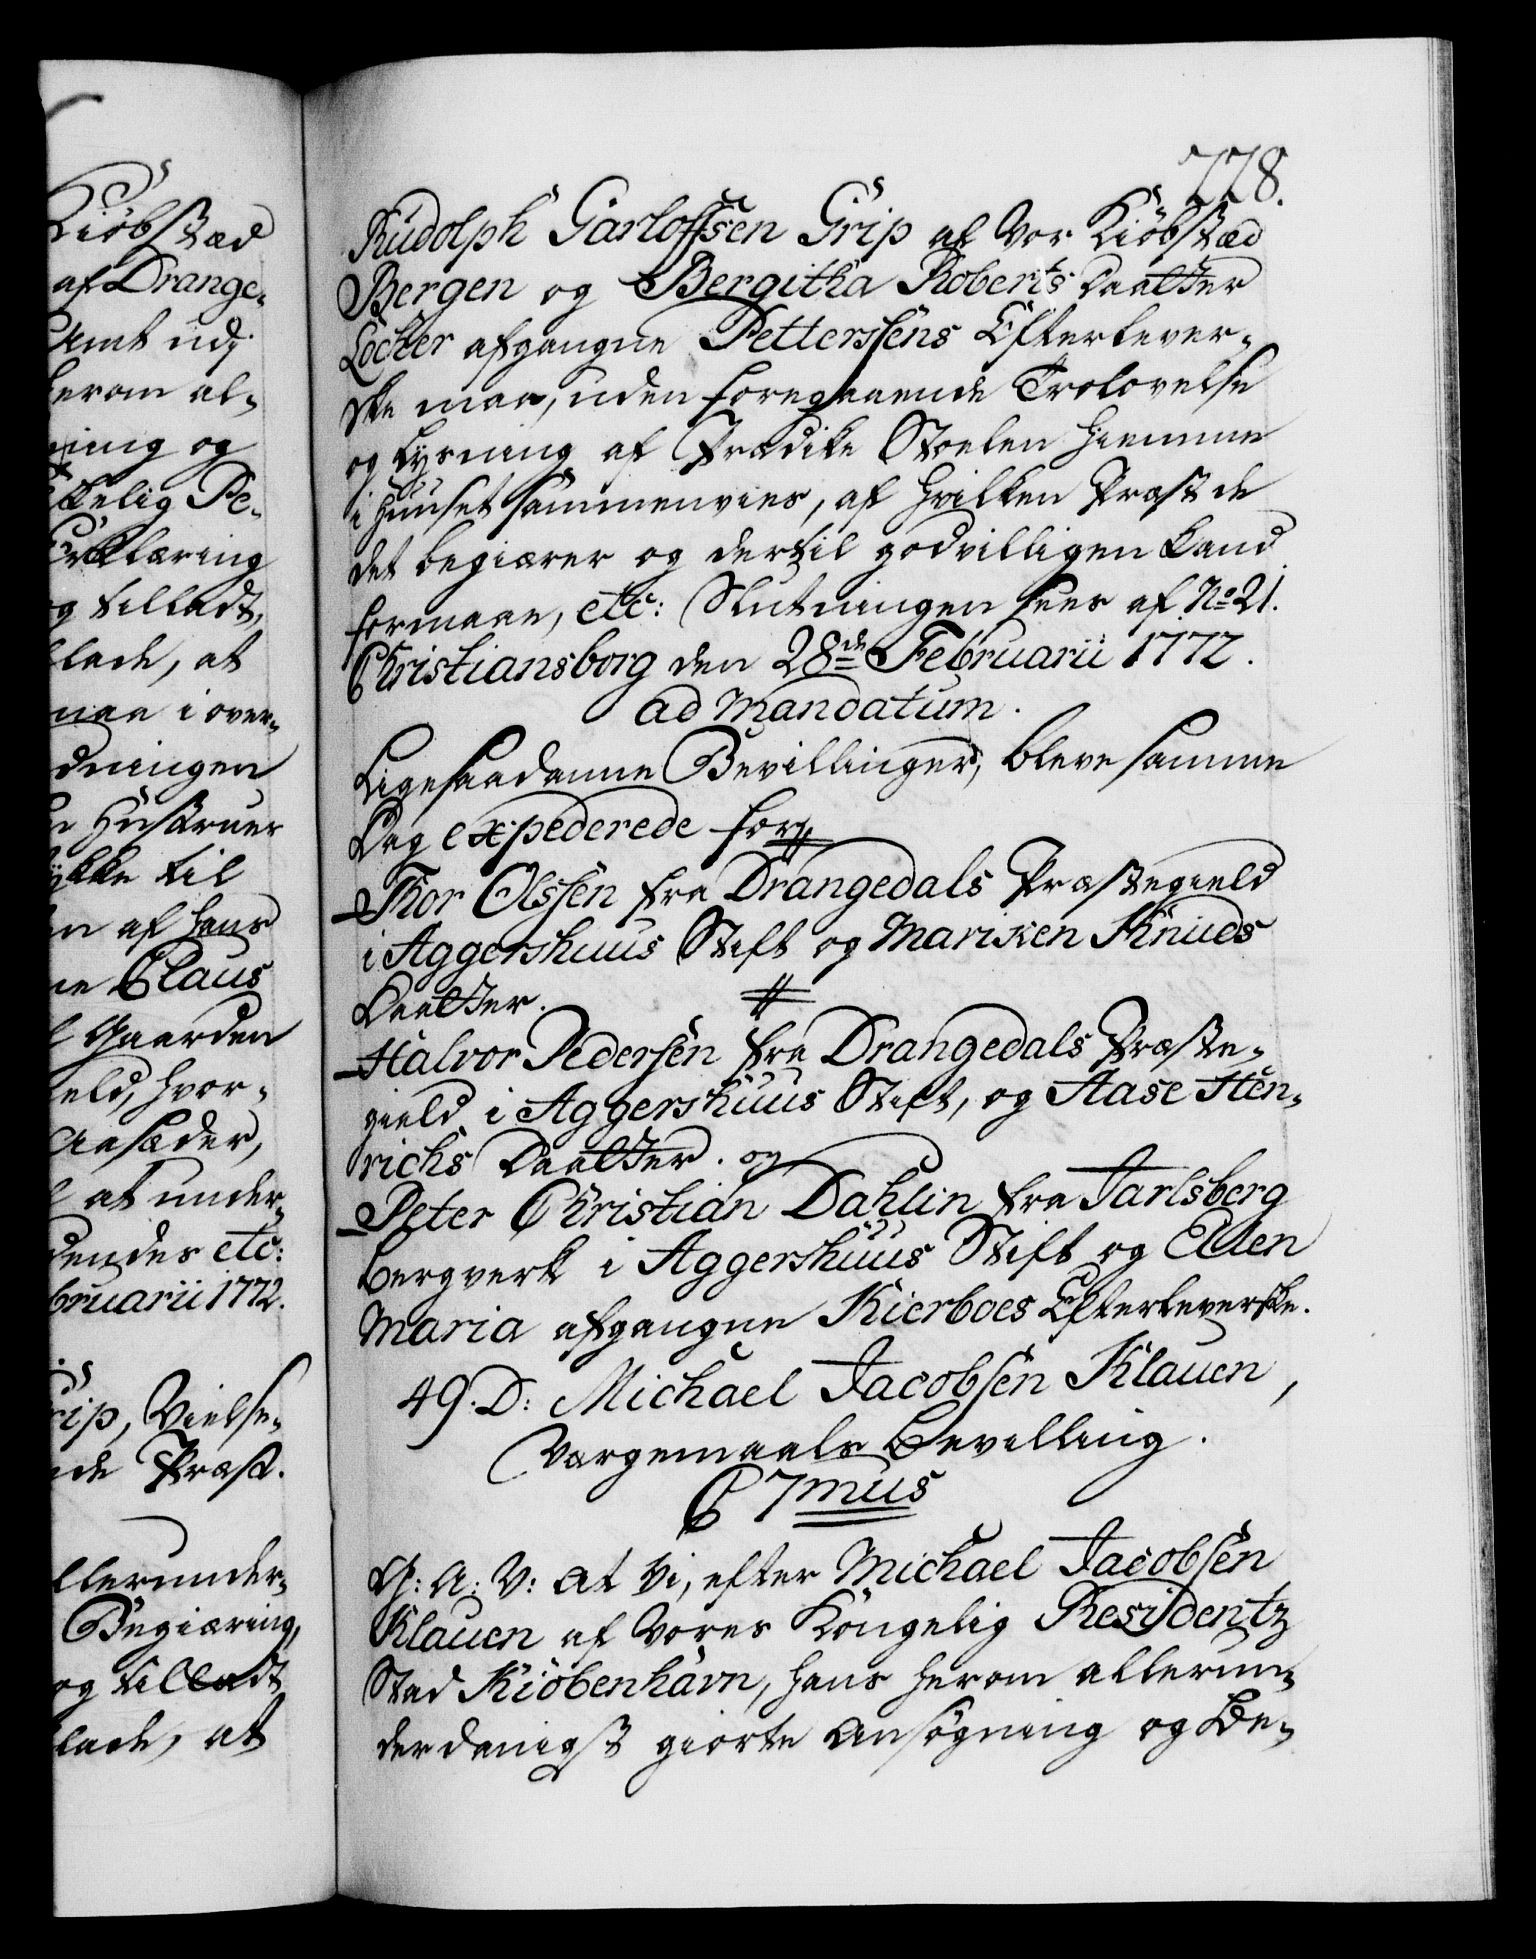 Kiöbstæd
af Drange-
Amt udj
herom al-
ning og
Pe-
Erklæring
og tilladt,
lade, at
maa i over-
dningen
Hustruer
lykke til
af hans
Claus
Gaarden
hvor-
at under-
etc:
bruarii 1772.
rip, Vielse-
Præst.
llerunder-
Begiæring,
og tilladt
lade, at
778.
Rudolph Garloffsen Grip af vor Kiöbstæd
Bergen og Bergitha Roberts Daatter
Löcter afgangne Petterssens Efterlever-
ske maa, uden foregaaende Trolovelse
og Lysning af Prædike Stoelen hiemme
i Huuset sammenvies, af hvilken Præst de
det begiærer og dertil godvilligen kand
formaae, etc: Slutningen sees af No 21.
Christiansborg den 28de Februarii 1772.
ad Mandatum.
Ligesaadanne Bevillinger, bleve samme
Dag expederede for
Thor Olssen fra Drangedals Præstegield
i Aggershuus Stift og Marisken Knuds
Daatter.
Halvor Pedersen fra Drangedals Præste-
gield i Aggershuus Stift, og Aase Hen-
richs Daatter. og
Peter Christian Dahlin fra Jarlsberg
Bergverk i Aggershuus Stift og Ellen
Maria afgangne Kierboes Efterleverske.
49. D: Michael Jacobsen Klauen,
Værgemaals Bevilling.
C 7mus
G: A: V: at Vi, efter Michael Jacobsen
Klauen af Vores Kongelig Residentz
Stad Kiöbenhavn, hans herom allerun-
derdanigst giorte Ansøgning og Be-